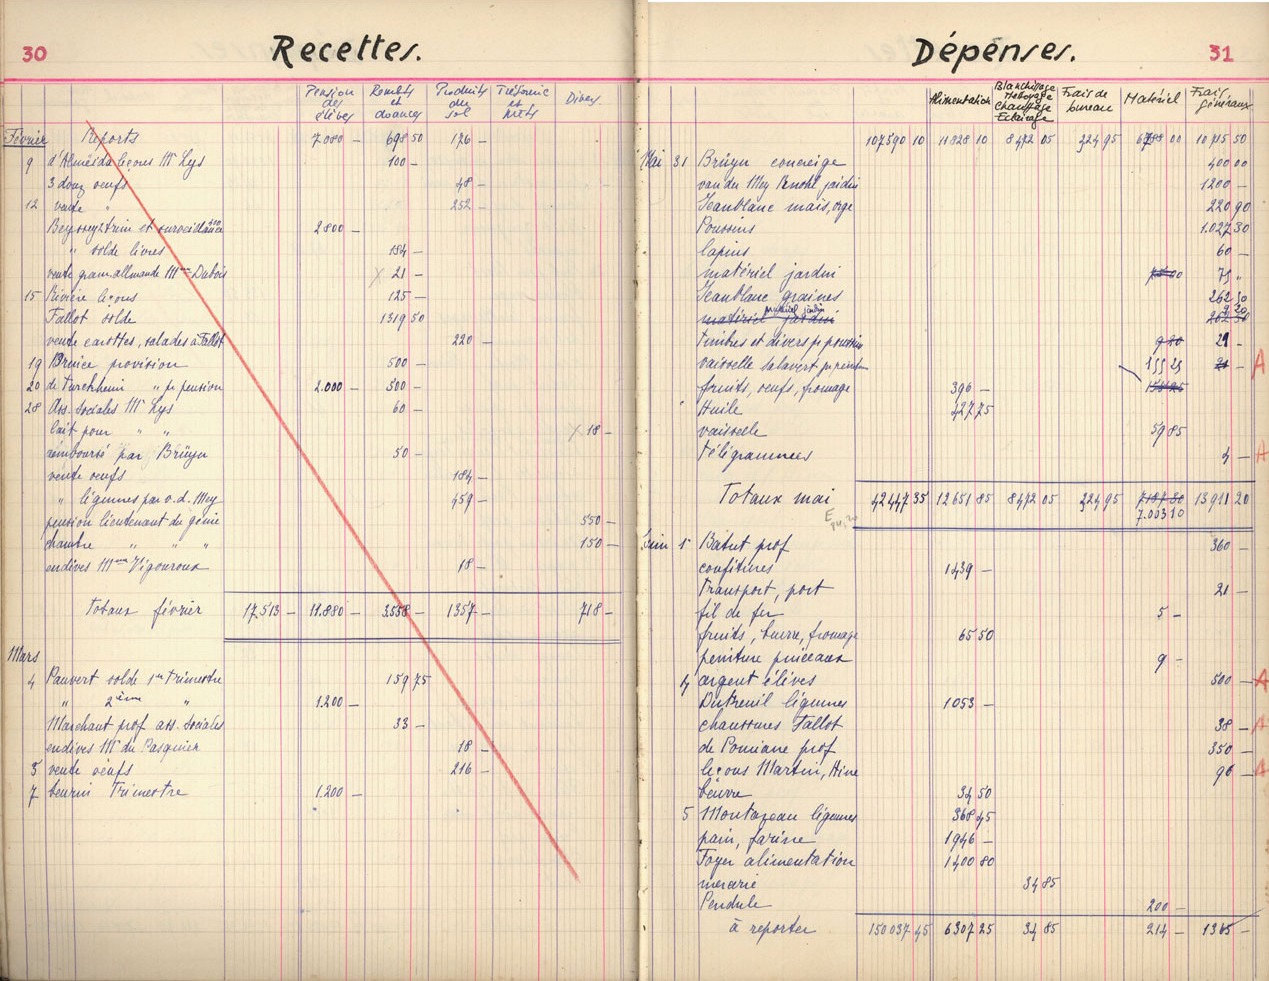 30 Recettes.
Pension des élèves Rembts et avances Produits du sol Trésorerie et prêts Divers
Février Reports 7080 – 698 50 176 –
9 d'Alméida leçons Mr Lys 100 –
3 douz oeufs 48 –
12 vente " 252 –
et surveillance 2800 –
" solde livres 154 –
vente gram. allemande Mme Dubois x 21 –
15 Rivière leçons 125 –
Fallot solde 1319 50
vente carottes, salades à Fallot 220 –
19 Bruice provision 500 –
20 de Turckheim " pr pension 2.000 – 300 –
28 Ass. sociales Mr Lys 60 –
lait pour " " x 18 –
remboursé par Brüyn 50 –
vente oeufs 184 –
" légumes par v. d. Mey 459 –
pension lieutenant du génie 550 –
chambre " " " 150 –
endives Mme Vigouroux 18 –
Totaux février 17513 – 11.880 – 3558 – 1357 – 718 –
Mars
4 Pauvert solde 1er Trimestre 159 75
" 2ème " 1200 –
Marchant prof ass. sociales 33 –
endives Mr du Pasquier 18 –
5 vente oeufs 216 –
7 Trimestre 1.200 –
Dépenses. 31
Alimentation Blanchissage Nettoyage Chauffage Eclairage Frais de bureau Matériel Frais généraux
107590 10 11828 10 8472 05 224 95 00 10715 50
Mai 31 Brüyn concierge 400 00
van der Mey jardin 1200 –
Jeanblanc maïs, orge 220 90
Poussins 1.027 30
lapins 60 –
matériel jardin 75 "
Jeanblanc graines 262 30
matériel jardin matériel jardin 9 20
timbres et divers pr poussins 9 80 21 –
vaisselle Salavert pr 155 25 A
fruits, oeufs, fromage 396 –
Huile 427 75
vaisselle 59 85
télégrammes 4 – A
Totaux mai 42447 35 12651 85 8472 05 224 95 7187 30 13911 20
E 84,20 7.003 10
Juin 1er Batut prof 360 –
confitures 1439 –
Transport, port 21 –
fil de fer 5 –
fruits, beurre, fromage 65 50
peinture pinceaux 9 –
4 argent élèves 500 – A
Dutreuil légumes 1053 –
chaussures Fallot 38 – A
de Pomiane prof 350 –
leçons Martin, Hine 96 – A
beurre 34 50
5 Montazeau légumes 368 45
pain, farine 1946 –
Foyer alimentation 1400 80
mercerie 34 85
Pendule 200 –
à reporter 150037 45 6307 25 34 85 214 – 1365 –